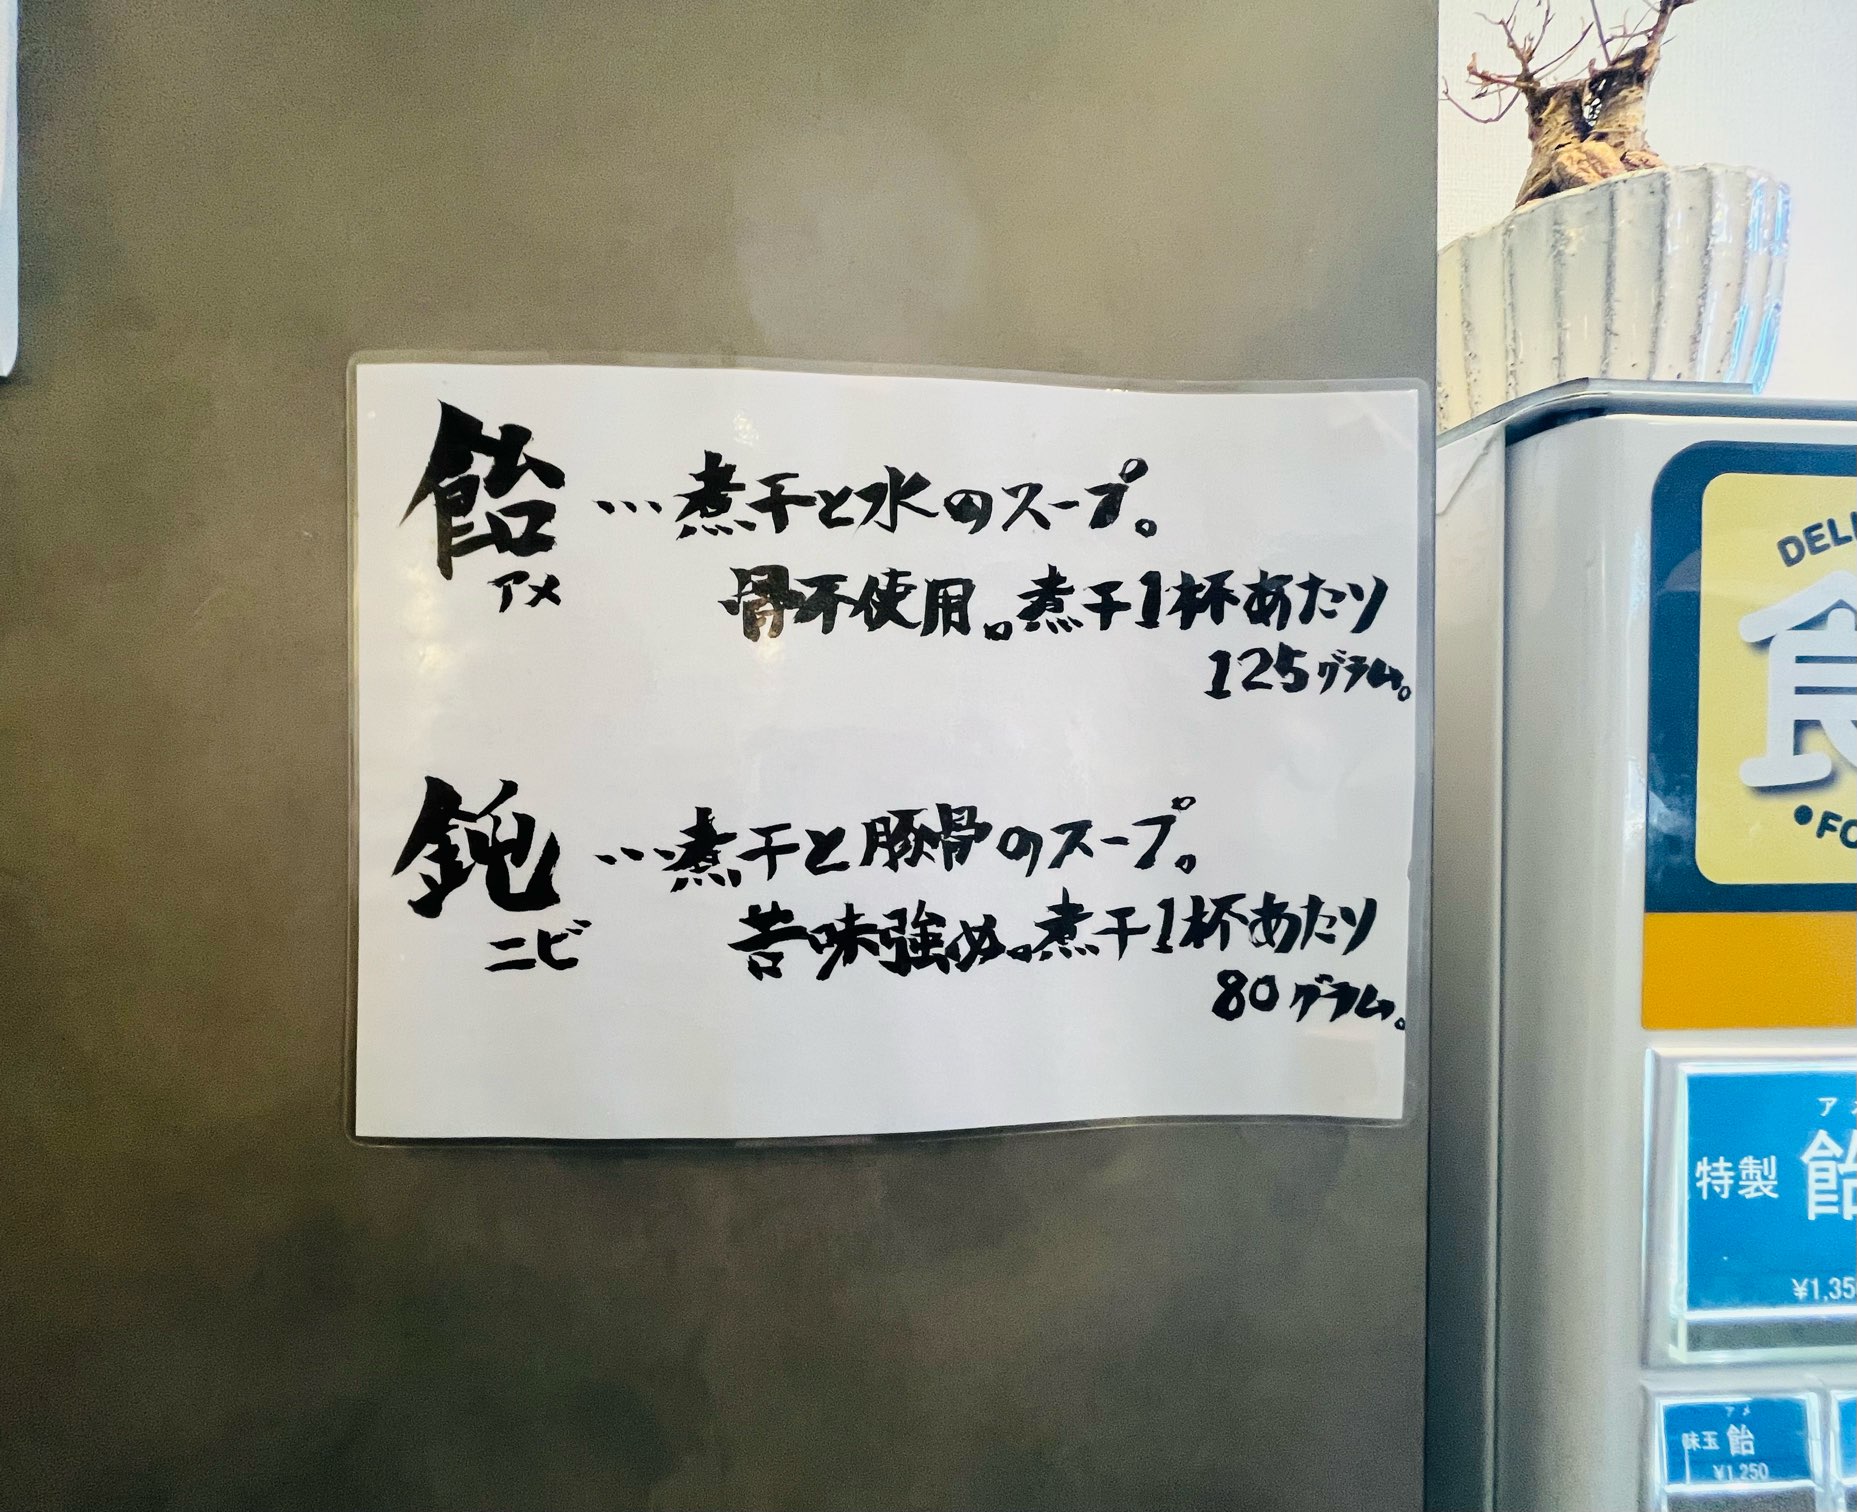 飴 …煮干と水のスープ。
アメ
骨不使用。煮干1杯あたり
125グラム。
…煮干と豚骨のスープ。
ニビ
苦味強め。煮干1杯あたり
80グラム。
DELI
食
•FO
ア
特製 飴
¥1,35
アメ
味玉 飴
¥1,250